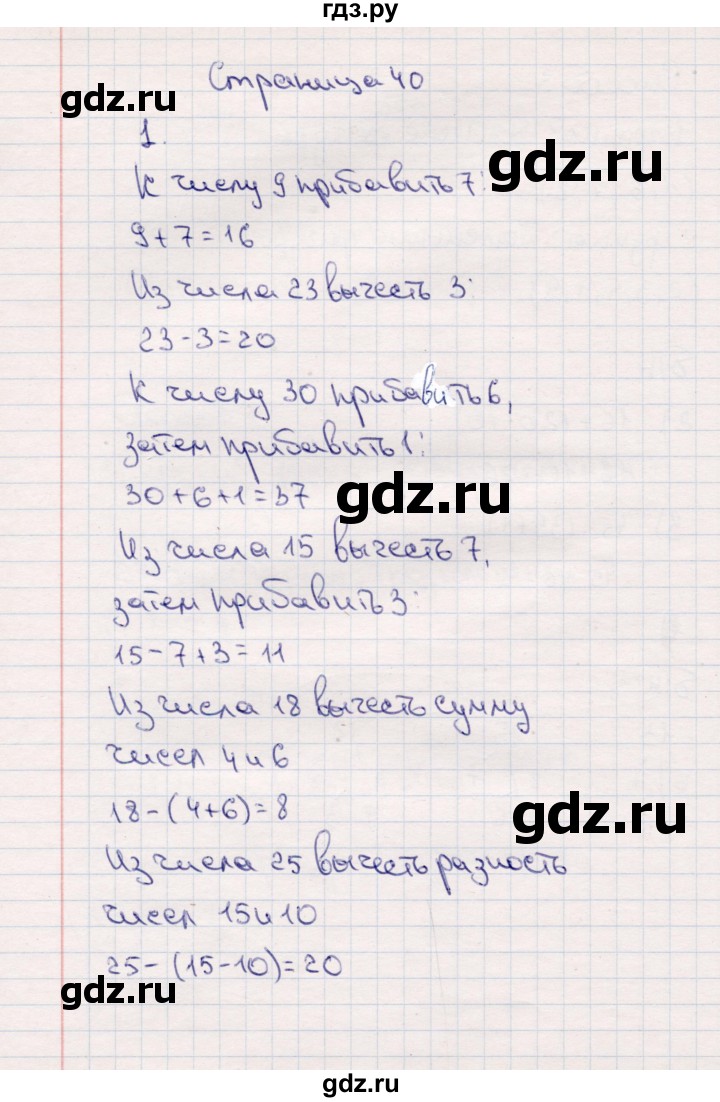 гдз.ру
Страница 40
gdz.ru
1.
gdz.ru
К числу 9 прибавить 7:
9+7=16
Из числа 23 вычесть 3:
23-3=20
К числу 30 прибавить 6,
затем прибавить 1:
30+6+1=37
gdz.ru
Из числа 15 вычесть 7,
затем прибавить 3:
15-7+3=11
Из числа 18 вычесть сумму
чисел 4 и 6
18-(4+6)=8
gdz.ru
Из числа 25 вычесть разность
чисел 15 и 10
25-(15-10)=20
gdz.ru
gdz.ru